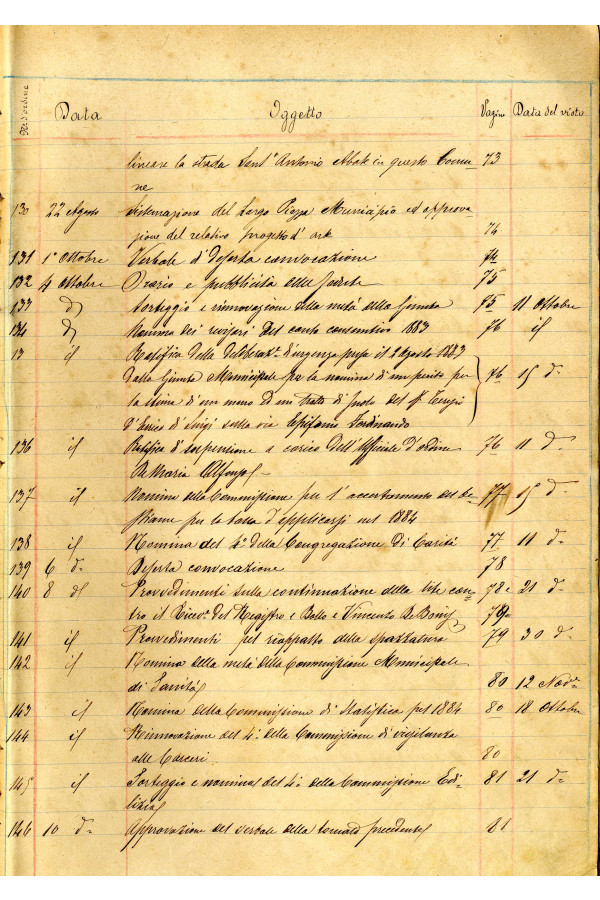 N. d'ordine Data Oggetto Pagina Data del visto
lineare la strada Sant'Antonio Abate in questo Comu- 73
ne
130 22 Agosto Sistemazione del Largo Piazza Municipio ed approva-
zione del relativo progetto d'arte 74
131 1° Ottobre Verbale di deserta convocazione 74
132 4 Ottobre Orario e pubblicità delle sedute 75
133 d° Sorteggio e rinnovazione della metà della Giunta 75 11 Ottobre
134 d° Nomina dei revisori del conto consuntivo 1883 76 id
13 id Ratifica della deliberaz.e d'urgenza presa il 2 Agosto 1883
dalla Giunta Municipale per la nomina di un perito per 76 15 d°
la stima di un muro di un tratto di suolo del Sig.r
d'Enrico di Luigi sulla via Epifanio Ferdinando
136 id Ratifica di sospensione a carico dell'Uffiziale d'ordine 76 11 d°
De Maria Alfonso
137 id Nomina della Commissione per l'accertamento del be- 77 15 d°
stiame per la tassa d'applicarsi nel 1884
138 id Nomina del 4° della Congregazione di Carità 77 11 d°
139 6 d° Deserta convocazione 78
140 8 d° Provvedimenti sulla continuazione della lite con- 78 e 21 d°
tro il Ricev.e del Registro e Bollo e Vincenzo 79
141 id Provvedimenti pel riappalto dello spazzatura 79 30 d°
142 id Nomina della metà della Commissione Municipale
di Sanità 80 12 Nov.e
143 id Nomina della Commissione di Statistica pel 1884 80 18 Ottobre
144 id Rinnovazione del 4° della Commissione di vigilanza
alle Carceri 80
145 id Sorteggio e nomina del 4° della Commissione Edi- 81 21 d°
lizia
146 10 d° Approvazione del verbale della tornata precedente 81